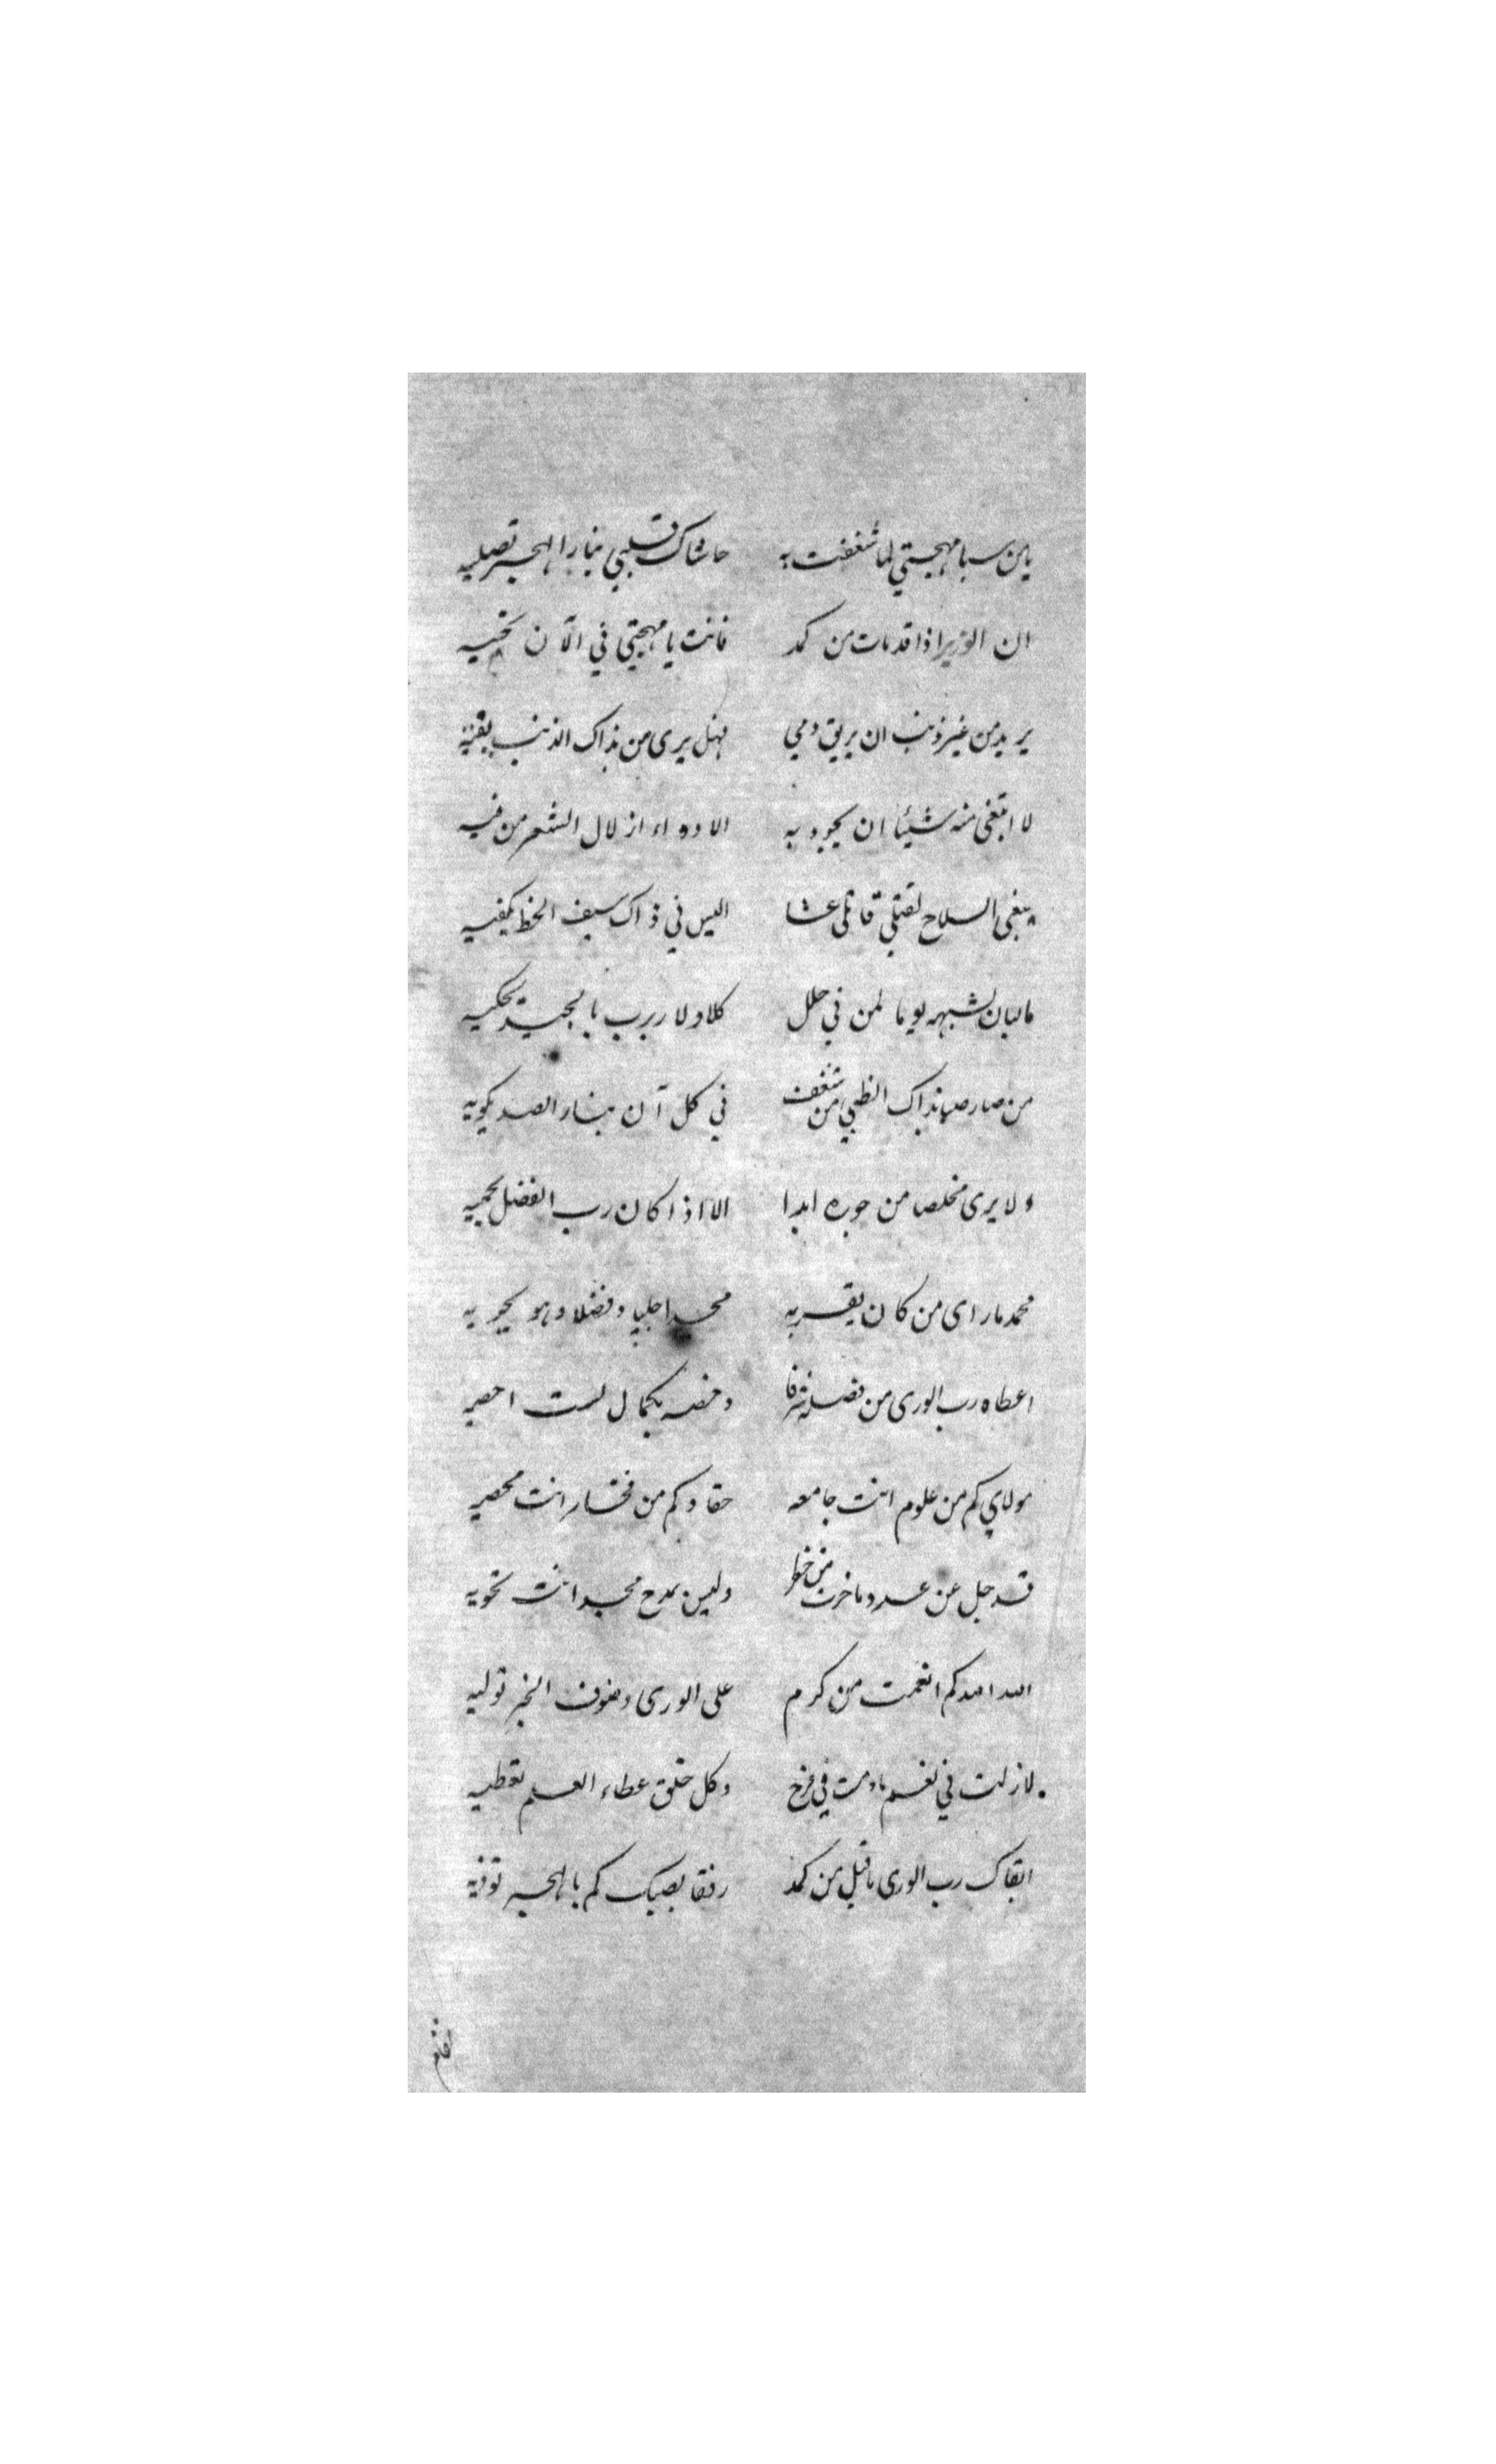 يا من سبا مهجتي لما شغفت به حاشاك قلبي بنار الهجر تصليه
ان الوزير اذا قد مات من كمد فانت يا مهجتي في الآن تحييه
يريد من غير ذنب ان يريق دمي فهل يرى من بذاك الذنب يفتيه
لا ابتغى منه شيئا ان يجود به الا دواء ازلال الثغر من فيه
يبغى السلاح لقتلي قاتلي عبثا اليس في ذاك سيف اللحظ يكفيه
ما البان يشبهه يوما لمن في حلل كلا ولا ربرب بالجيد يحكيه
من صار صبا بذاك الظبي من شغف في كل آن بنار الصد يكويه
ولا يرى مخلصا من جوره ابدا الا اذا كان رب الفضل يحميه
محمد ما راى من كان يقربه مجدا جليا وفضلا وهو يحويه
اعطاه رب الورى من فضله شرفا وخصه بكمال لست احصيه
مولاي كم من علوم انت جامعه حقا وكم من فخار انت محصيه
قد جل عن عد وما خزت من خطر وليس مدح مجد انت تحويه
الله الله كم انعمت من كرم على الورى وصنوف الخير توليه
لا زلت في نعم ما دمت في فرح وكل خلق عطاء العلم تعطيه
ابقاك رب الورى ما قيل من كمد رفقا بصبك كم بالهجر تؤذيه